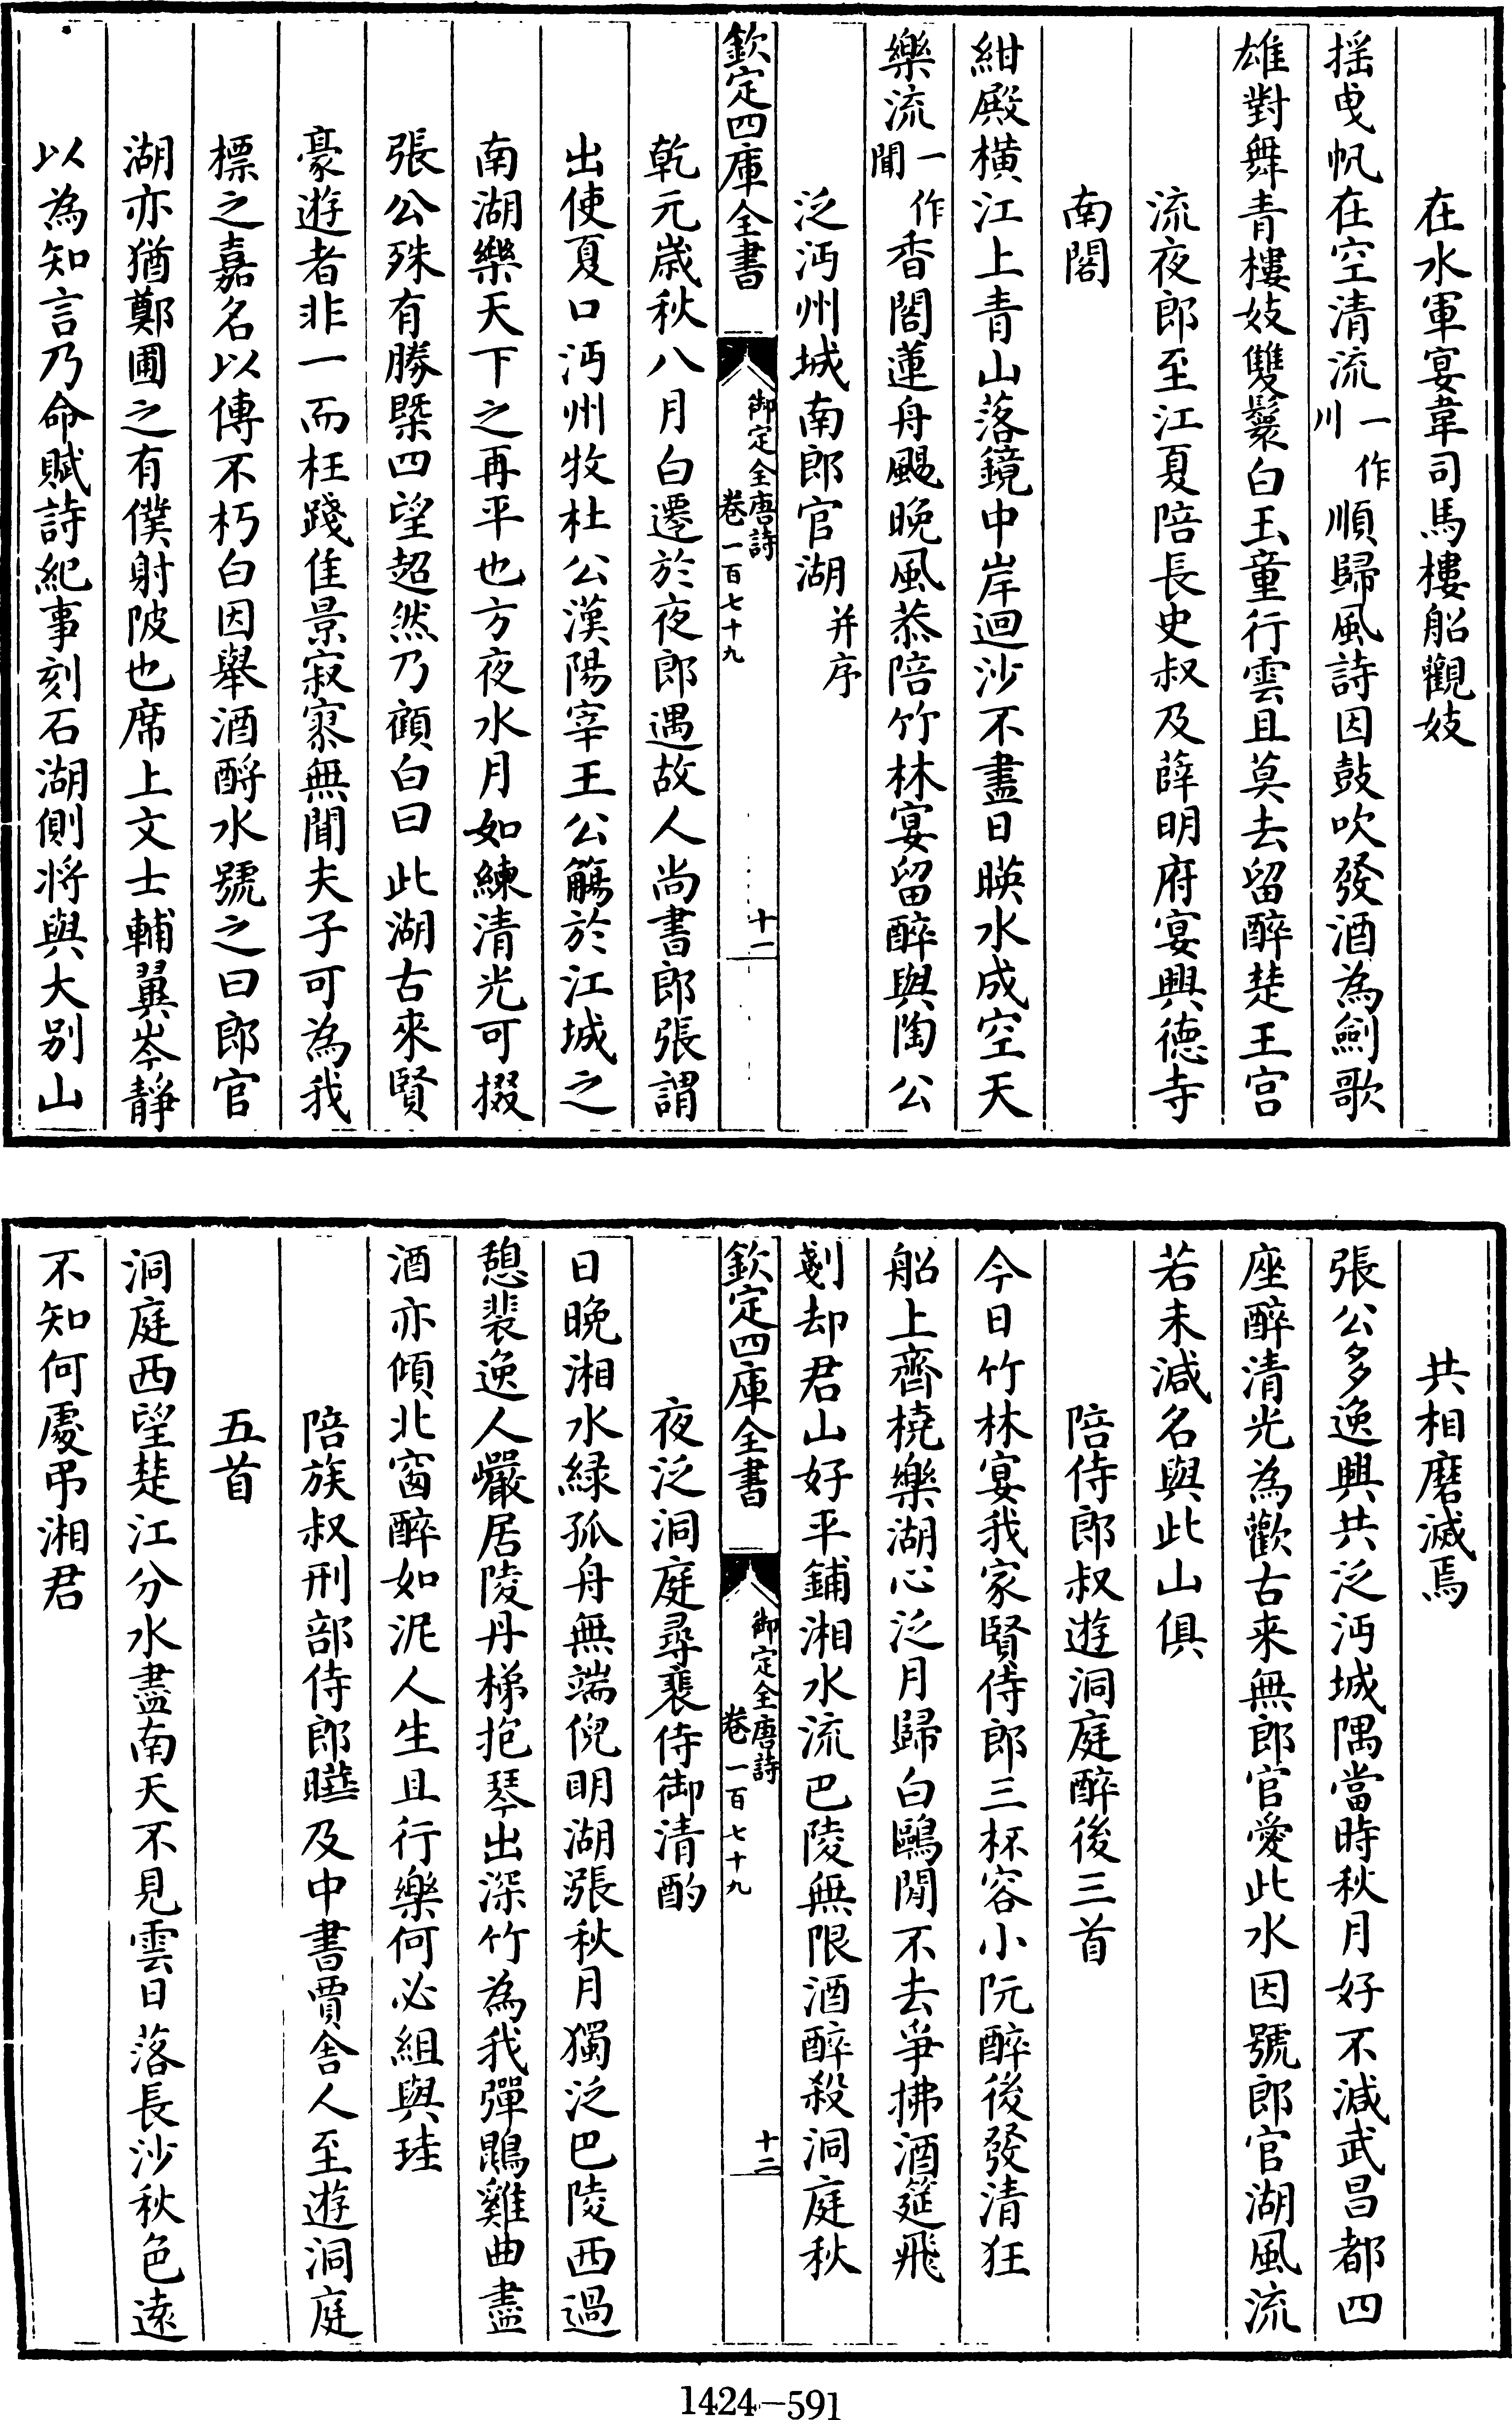 在水軍宴韋司馬樓船觀妓
揺曵帆在空清流一作川順歸風詩因鼓吹發酒為劍歌
雄對舞青樓妓雙鬟白玉童行雲且莫去留醉楚王宫
流夜郎至江夏陪長史叔及薛明府宴興徳寺
南閣
紺殿横江上青山落鏡中岸迴沙不盡日暎水成空天
樂流一作聞香閣蓮舟颺晚風恭陪竹林宴留醉與陶公
泛沔州城南郎官湖并序
欽定四庫全書
御定全唐詩
卷一百七十九
十一
乾元歳秋八月白遷於夜郎遇故人尚書郎張謂
出使夏口沔州牧杜公漢陽宰王公觴於江城之
南湖樂天下之再平也方夜水月如練清光可掇
張公殊有勝槩四望超然乃顧白曰此湖古來賢
豪遊者非一而枉踐佳景寂寥無聞夫子可為我
標之嘉名以傳不朽白因舉酒酹水號之曰郎官
湖亦猶鄭圃之有僕射陂也席上文士輔翼岑靜
以為知言乃命賦詩紀事刻石湖側将與大别山
共相磨滅焉
張公多逸興共泛沔城隅當時秋月好不減武昌都四
座醉清光為歡古来無郎官愛此水因號郎官湖風流
若未減名與此山俱
陪侍郎叔遊洞庭醉後三首
今日竹林宴我家賢侍郎三杯容小阮醉後發清狂
船上齊橈樂湖心泛月歸白鷗閒不去爭拂酒筵飛
剗却君山好平鋪湘水流巴陵無限酒醉殺洞庭秋
欽定四庫全書
御定全唐詩
卷一百七十九
十二
夜泛洞庭尋裴侍御清酌
日晚湘水緑孤舟無端倪明湖漲秋月獨泛巴陵西過
憩裴逸人巖居陵丹梯抱琴出深竹為我彈鵾雞曲盡
酒亦傾北窗醉如泥人生且行樂何必組與珪
陪族叔刑部侍郎曄及中書賈舍人至遊洞庭
五首
洞庭西望楚江分水盡南天不見雲日落長沙秋色遠
不知何處弔湘君
1424-591